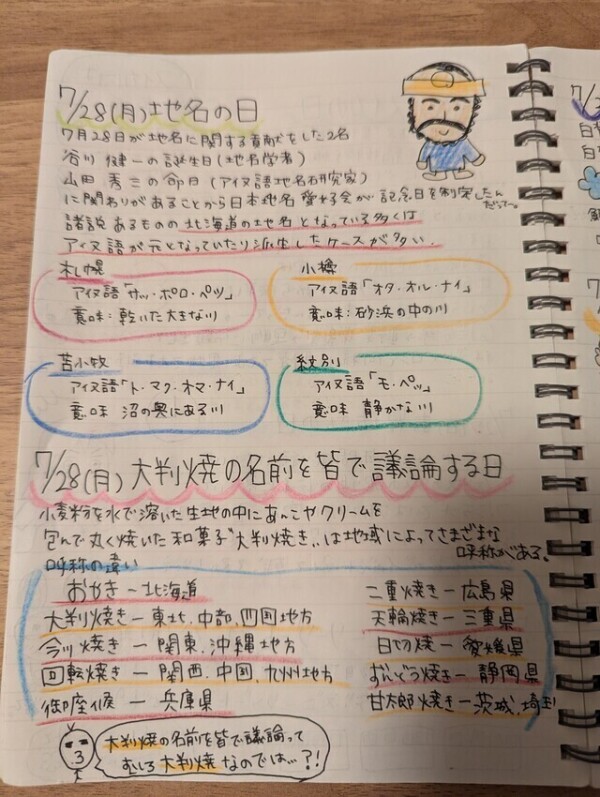 7/28(月)地名の日
7月28日が地名に関する貢献をした2名
谷川健一の誕生日(地名学者)
山田秀三の命日(アイヌ語地名研究家)
に関わりがあることから日本地名愛好会が記念日を制定したんだって〜。
諸説あるものの北海道の地名となっている多くは
アイヌ語が元となっていたり派生したケースが多い.
札幌
アイヌ語「サッ・ポロ・ペツ」
意味:乾いた大きな川
小樽
アイヌ語「オタ・オル・ナイ」
意味:砂浜の中の川
苫小牧
アイヌ語「ト・マク・オマ・ナイ」
意味 沼の奥にある川
紋別
アイヌ語「モ・ペッ」
意味 静かな川
7/28(月) 大判焼の名前を皆で議論する日
小麦粉を水で溶いた生地の中にあんこやクリームを
包んで丸く焼いた和菓子"大判焼き"は地域によってさまざまな
呼称がある。
呼称の違い
おやき－北海道
大判焼き－東北,中部,四国地方
今川焼き－関東,沖縄地方
回転焼き－関西,中国,九州地方
御座候－兵庫県
二重焼き－広島県
天輪焼き－三重県
日切焼－愛媛県
ずんどう焼き－静岡県
甘太郎焼き－茨城,埼玉
大判焼の名前を皆で議論って
むしろ大判焼なのでは…?!